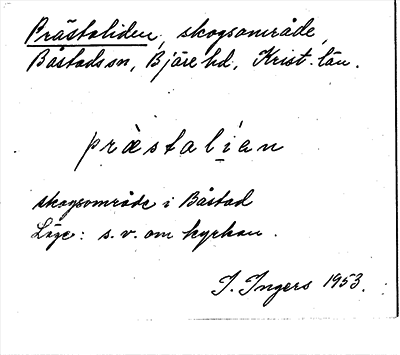 Prästaliden, skogsområde,
Båstads sn, Bjäre hd, Krist. län.
præstalian
skogsområde i Båstad
Läge: s.v. om kyrkan.
I. Ingers 1953.